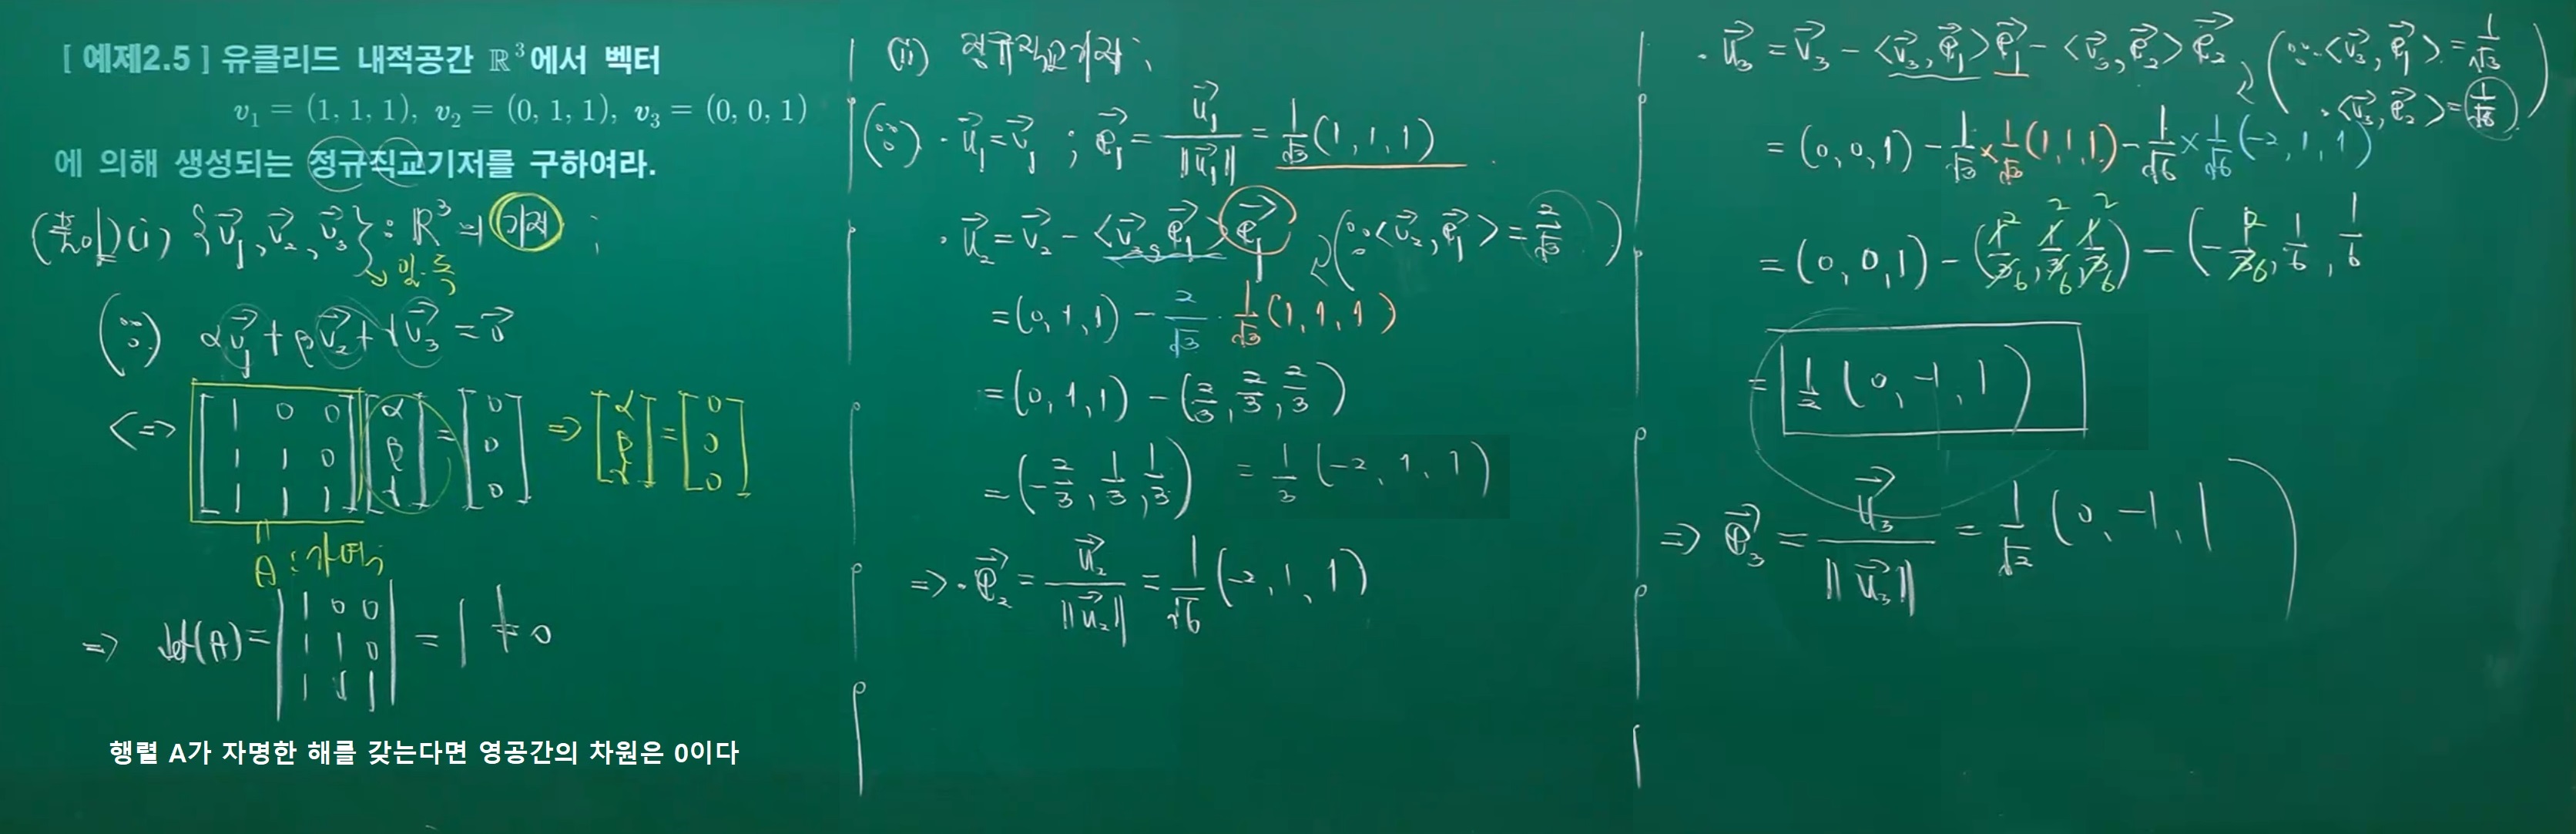 [ 예제2.5 ] 유클리드 내적공간 ℝ³에서 벡터
v₁ = (1, 1, 1), v₂ = (0, 1, 1), v₃ = (0, 0, 1)
에 의해 생성되는 정규직교기저를 구하여라.
(풀이) (i) {v⃗₁, v⃗₂, v⃗₃} : ℝ³의 기저 ;
↘ 일.독
(∵) αv⃗₁ + βv⃗₂ + γv⃗₃ = 0⃗
<=> [1 0 0; 1 1 0; 1 1 1][α; β; γ] = [0; 0; 0] => [α; β; γ] = [0; 0; 0]
A : 가역
=> det(A) = |1 0 0; 1 1 0; 1 1 1| = 1 ≠ 0
행렬 A가 자명한 해를 갖는다면 영공간의 차원은 0이다
(ii) 정규직교기저 ;
(∵) · u⃗₁ = v⃗₁ ; e⃗₁ = u⃗₁/‖u⃗₁‖ = 1/√3 (1, 1, 1)
· u⃗₂ = v⃗₂ - <v⃗₂, e⃗₁> e⃗₁ (∵ <v⃗₂, e⃗₁> = 2/√3)
= (0, 1, 1) - 2/√3 · 1/√3 (1, 1, 1)
= (0, 1, 1) - (2/3, 2/3, 2/3)
= (-2/3, 1/3, 1/3) = 1/3 (-2, 1, 1)
=> · e⃗₂ = u⃗₂/‖u⃗₂‖ = 1/√6 (-2, 1, 1)
· u⃗₃ = v⃗₃ - <v⃗₃, e⃗₁> e⃗₁ - <v⃗₃, e⃗₂> e⃗₂ (∵ · <v⃗₃, e⃗₁> = 1/√3
· <v⃗₃, e⃗₂> = 1/√6)
= (0, 0, 1) - 1/√3 × 1/√3 (1, 1, 1) - 1/√6 × 1/√6 (-2, 1, 1)
= (0, 0, 1) - (2/6, 2/6, 2/6) - (-2/6, 1/6, 1/6
= 1/2 (0, -1, 1)
=> e⃗₃ = u⃗₃/‖u⃗₃‖ = 1/√2 (0, -1, 1)